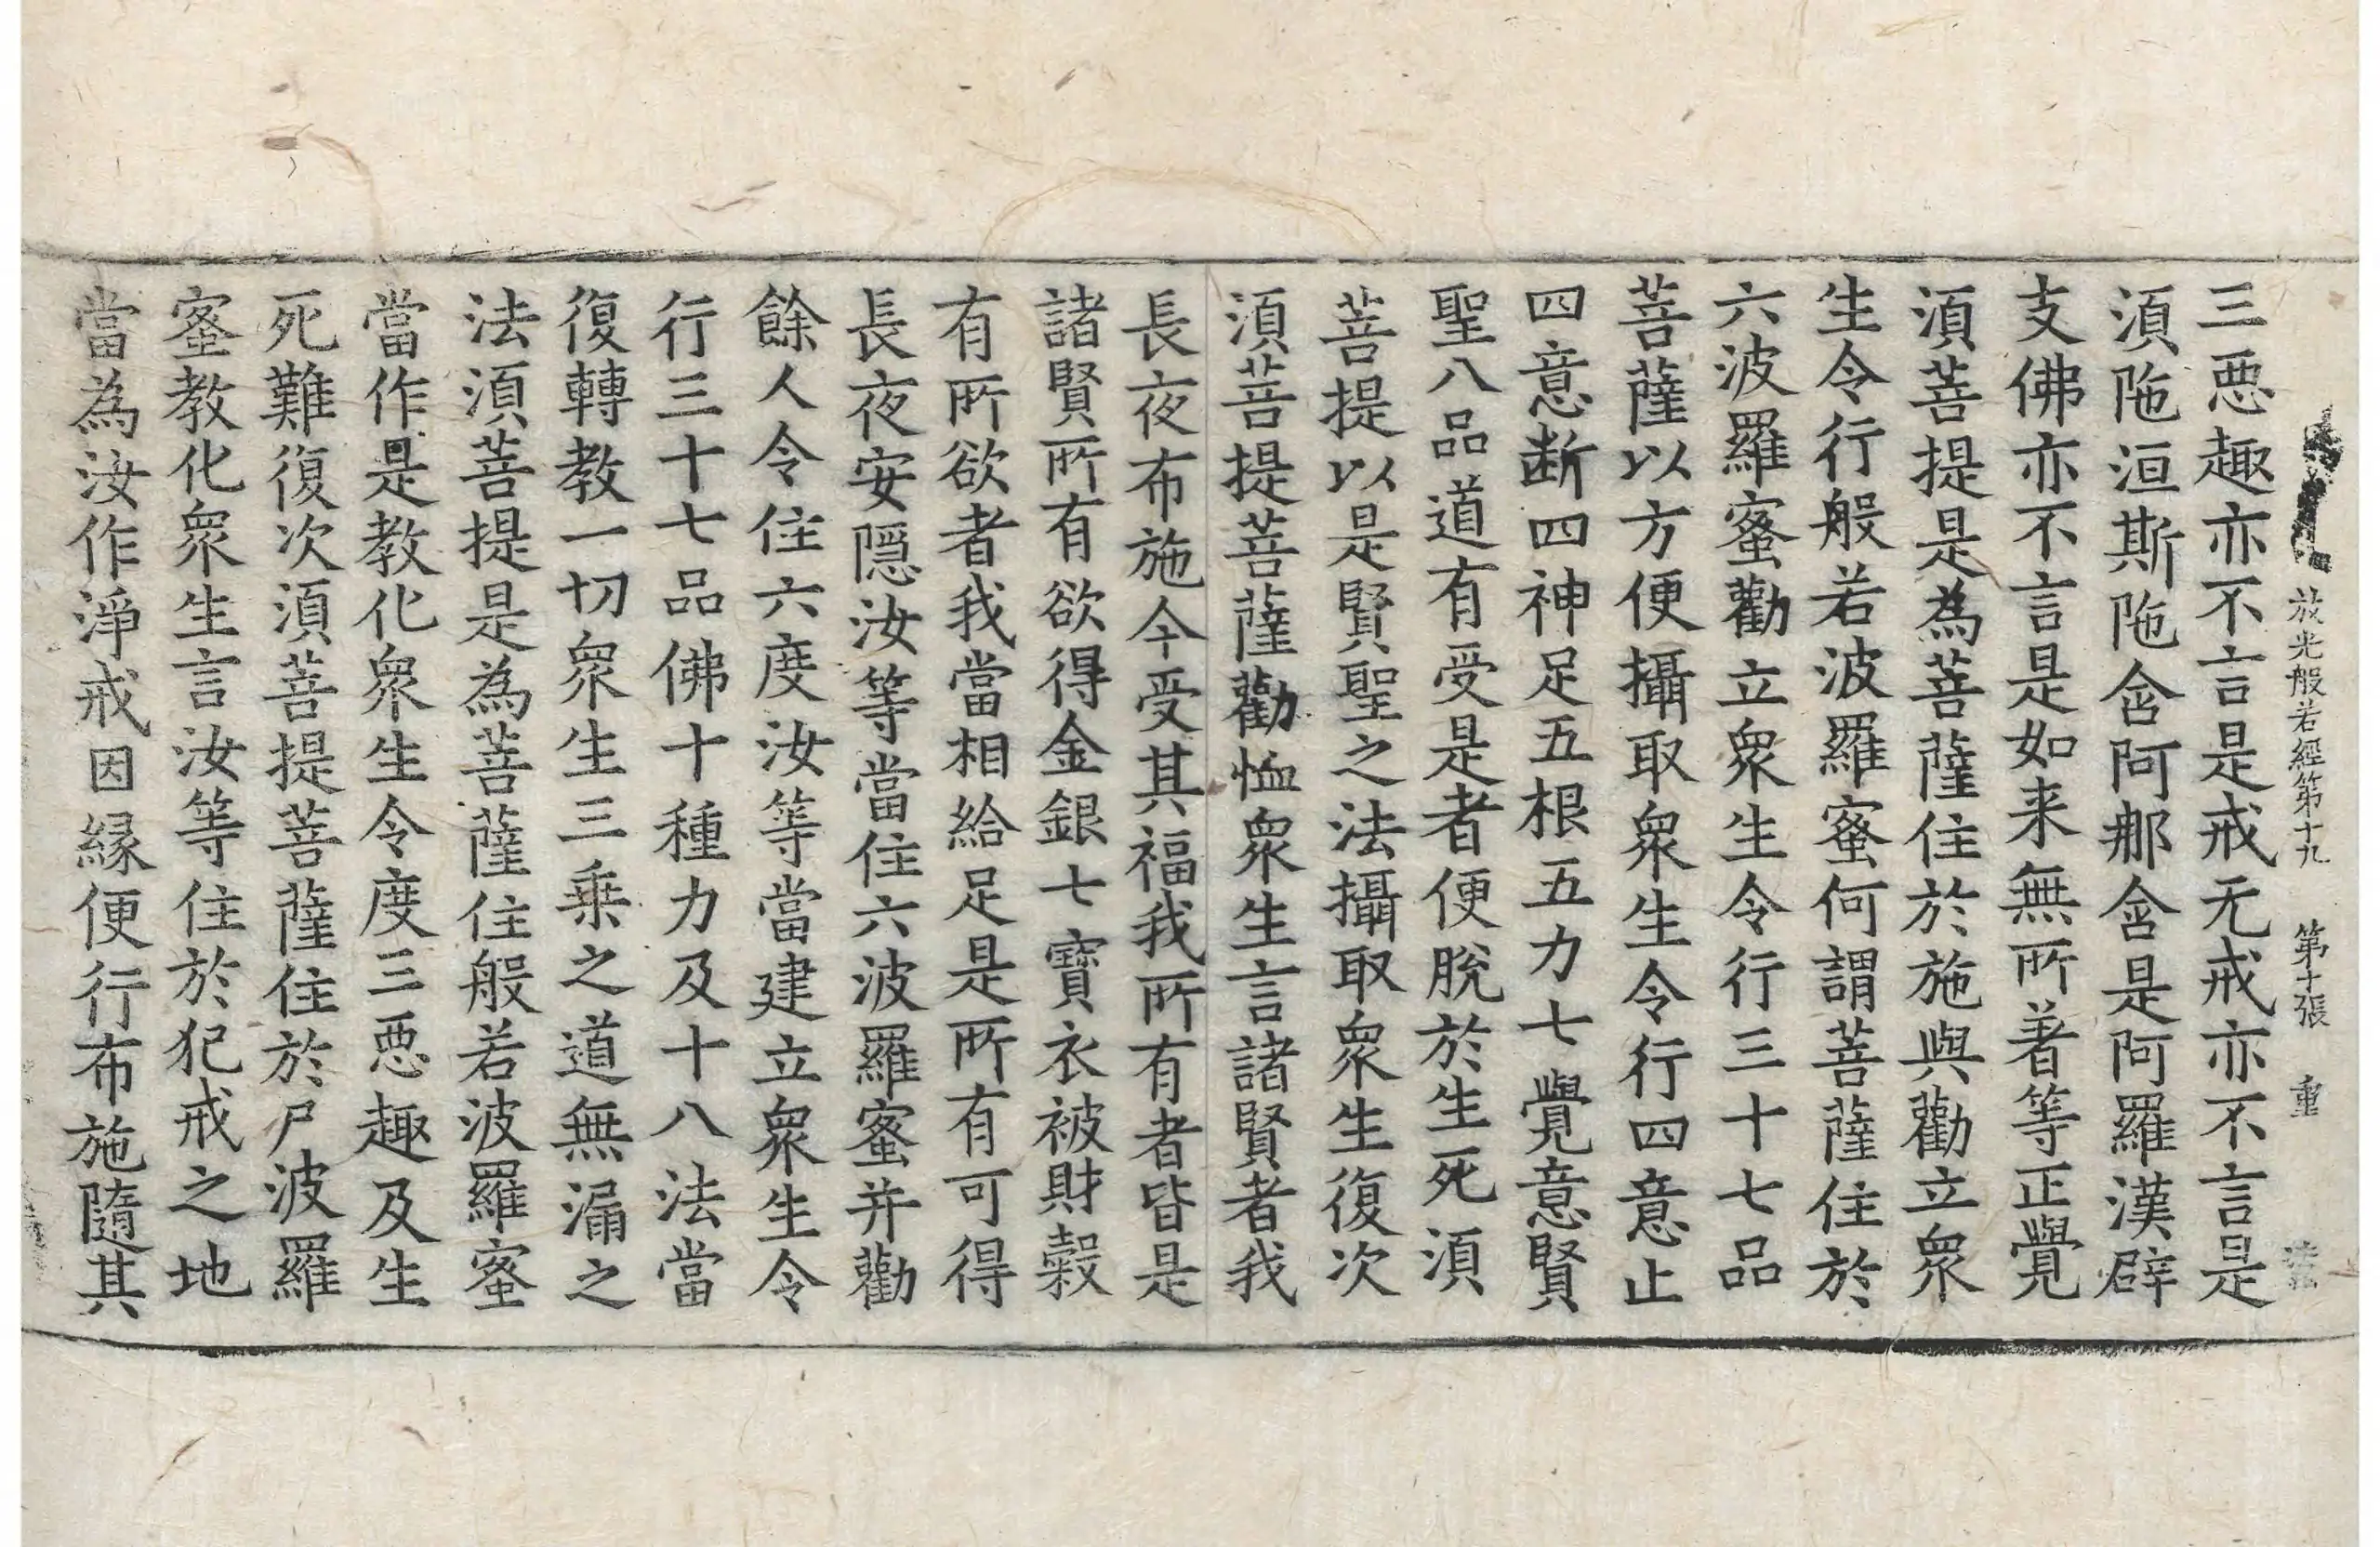 放光般若經第十九 第十張 重
三惡趣亦不言是戒无戒亦不言是
湏陁洹斯陁含阿那含是阿羅漢辟
支佛亦不言是如来無所著等正覺
湏菩提是為菩薩住於施與勸立衆
生令行般若波羅蜜何謂菩薩住於
六波羅蜜勸立衆生令行三十七品
菩薩以方便攝取衆生令行四意止
四意断四神足五根五力七覺意賢
聖八品道有受是者便脫於生死湏
菩提以是賢聖之法攝取衆生復次
湏菩提菩薩勸恤衆生言諸賢者我
長夜布施今受其福我所有者皆是
諸賢所有欲得金銀七寶衣被財穀
有所欲者我當相給足是所有可得
長夜安隱汝等當住六波羅蜜并勸
餘人令住六度汝等當建立衆生令
行三十七品佛十種力及十八法當
復轉教一切衆生三乗之道無漏之
法湏菩提是為菩薩住般若波羅蜜
當作是教化衆生令度三惡趣及生
死難復次湏菩提菩薩住於尸波羅
蜜教化衆生言汝等住於犯戒之地
當為汝作淨戒因縁便行布施隨其